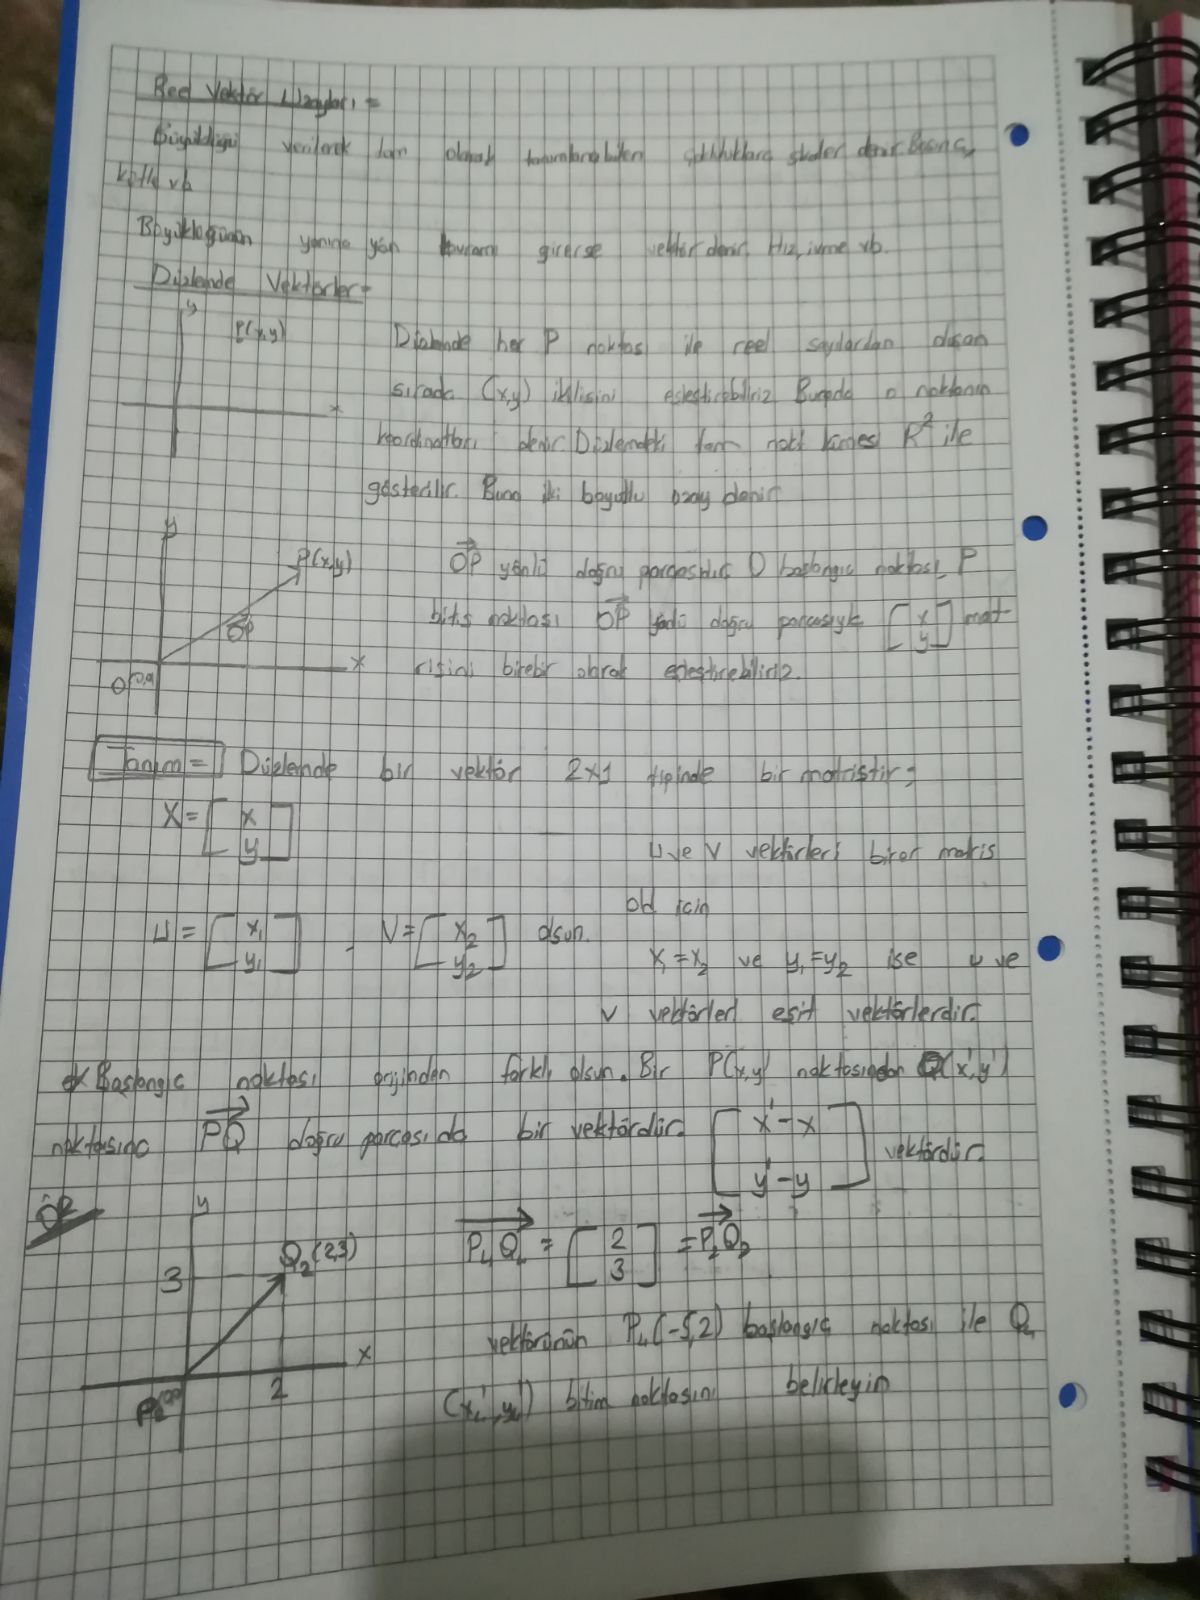 Reel Vektör Uzayları =
Büyüklüğü verilerek tam olarak tanımlanabilen çokluklara skaler denir. Basınç,
kütle vb.
Büyüklüğünün yanına yön kavramı girerse vektör denir. Hız, ivme vb.
Düzlemde Vektörler=
y
P(x,y)
x
Düzlemde her P noktası ile reel sayılardan oluşan
sırada (x,y) ikilisini eşleştirebiliriz Burada o noktanın
koordinatları denir. Düzlemdeki tüm nokt kümesi R² ile
gösterilir. Buna iki boyutlu uzay denir
y
P(x,y)
OP
x
O(0,0)
OP yönlü doğru parçasıdır. O başlangıç noktası, P
bitiş noktası OP yönlü doğru parçasıyla [x y] mat-
risini birebir olarak eşleştirebiliriz.
Tanım= Düzlemde bir vektör 2x1 tipinde bir matristir;
X = [x y]
u ve v vektörleri birer matris
old için
u = [x₁ y₁] , V = [x₂ y₂] olsun.
x₁ = x₂ ve y₁ = y₂ ise u ve
v vektörleri eşit vektörlerdir.
* Başlangıç noktası orijinden farklı olsun. Bir P(x,y) noktasından Q(x',y')
noktasına PQ doğru parçası da bir vektördür. [x'-x y'-y] vektördür.
ÖR
y
Q₂(2,3)
3
x
2
P₂(0,0)
P₄Q₄ = [2 3] = P₂Q₂
vektörünün P₄(-5,2) başlangıç noktası ile Q₄
(x₄',y₄') bitim noktasını belirleyin